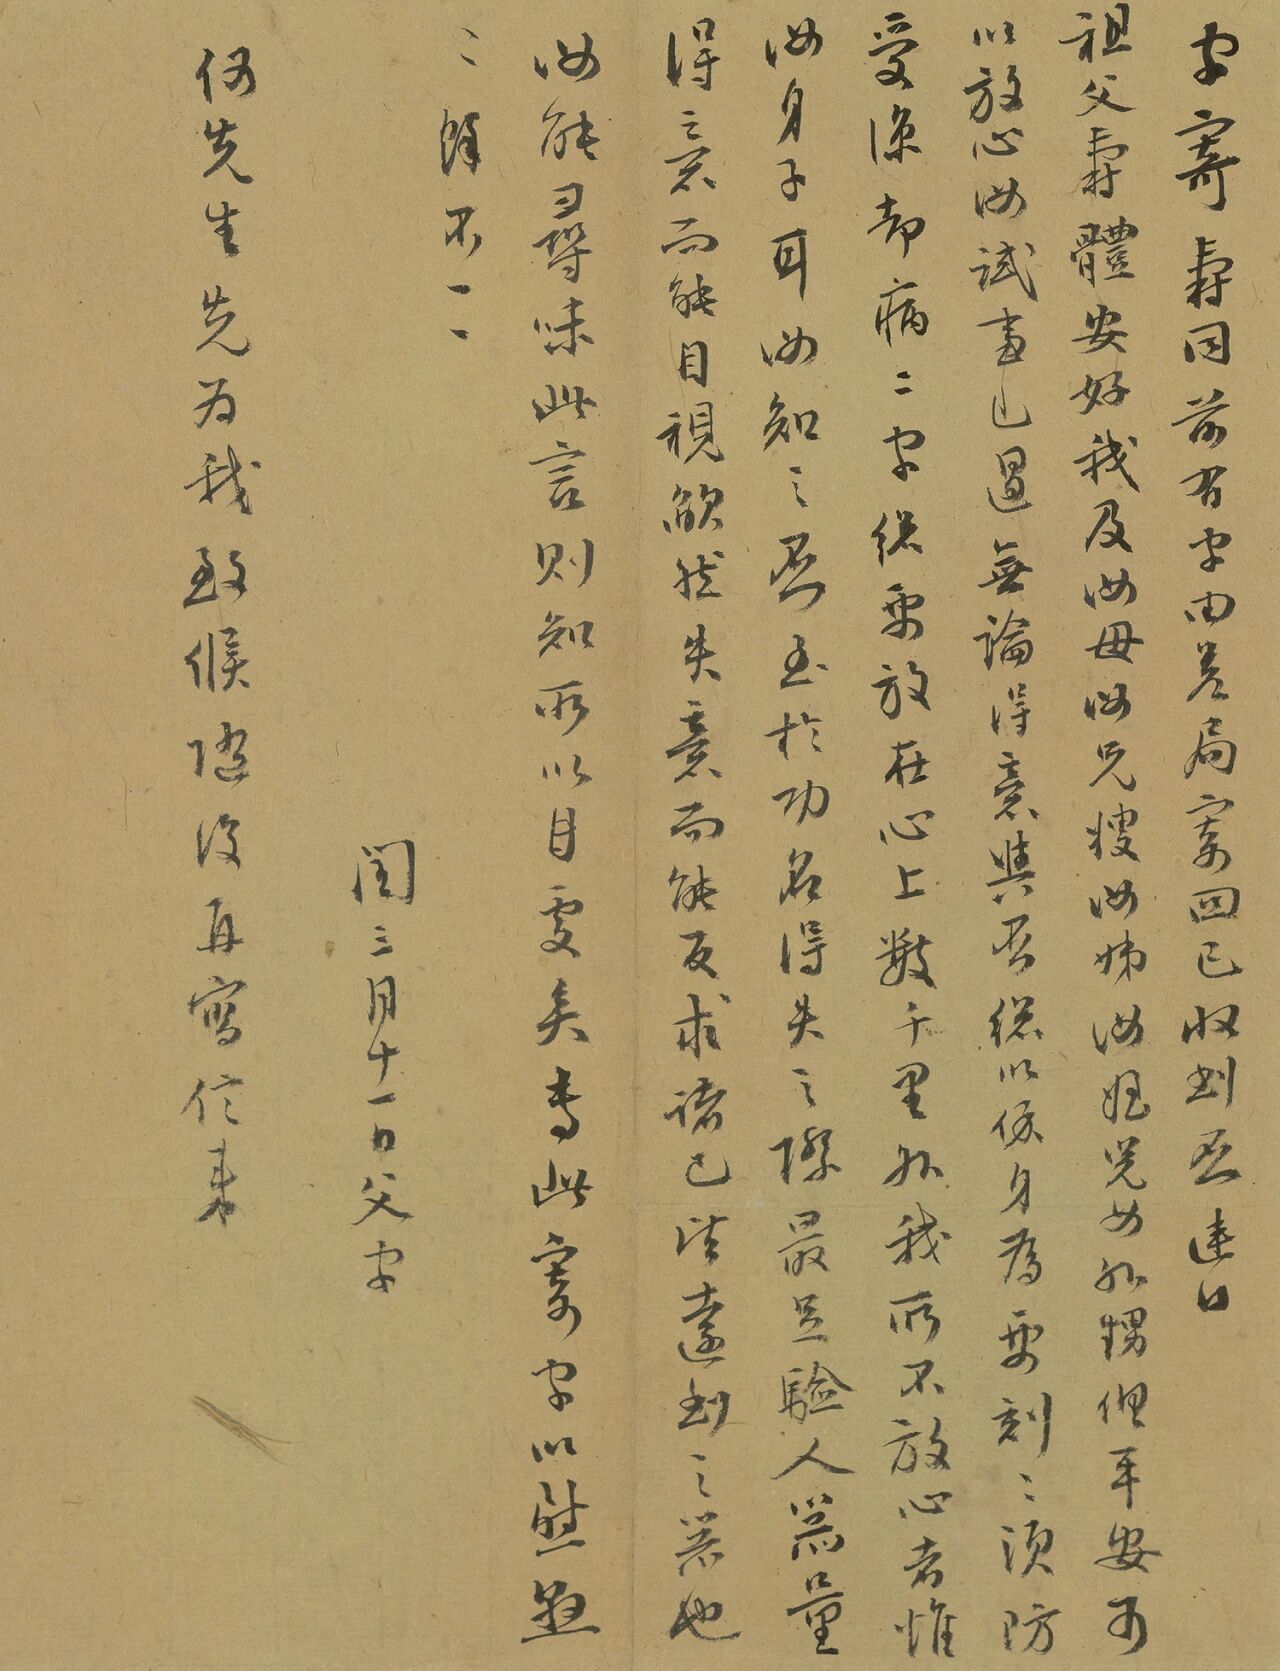 字寄壽同前有字由差局寄四已收到否連日
祖父壽體安好我及汝母汝兄嫂汝姊汝姪兒女外甥俱平安可
以放心汝試事已過無論得意與否總以保身爲要刻〻須防
受涼却病二字總要放在心上數千里外我所不放心者惟
汝身子耳汝知之否至於功名得失之際最足驗人器量
得意而能自視欿然失意而能反求諸己皆遠到之器也
汝能尋味此言則知所以自處矣專此寄字以慰懸
〻餘不一一
閏三月十一日父字
何先生先为我致候隨後再寫信來